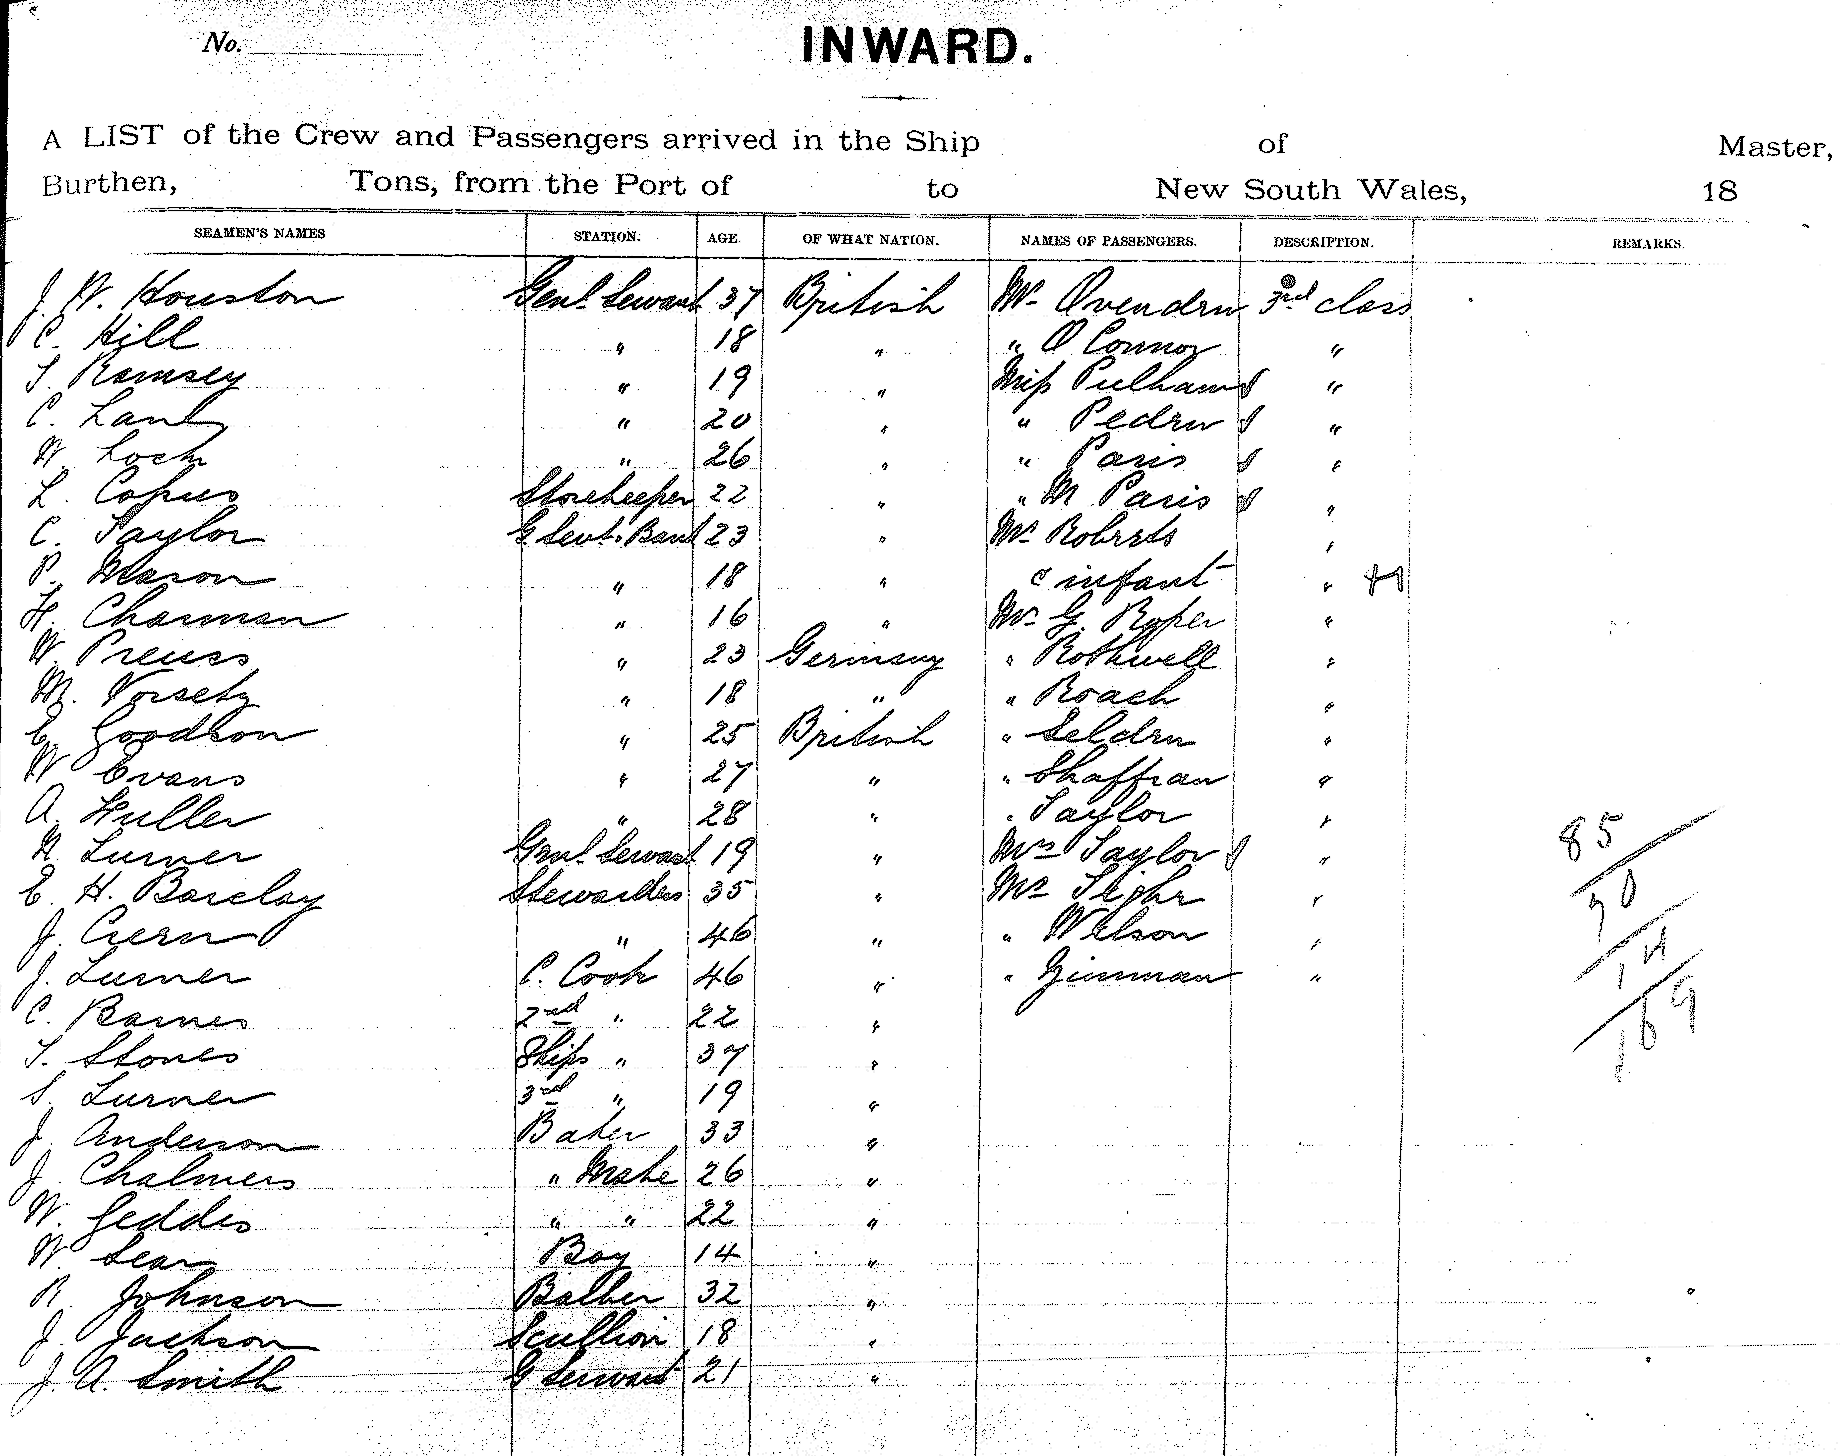 No.
INWARD.
A LIST of the Crew and Passengers arrived in the Ship of Master,
Burthen, Tons, from the Port of to New South Wales, 18
SEAMEN'S NAMES STATION. AGE. OF WHAT NATION. NAMES OF PASSENGERS. DESCRIPTION. REMARKS.
J. W. Houston Genl. Servant 37 British Mr. Ovenden 3rd class
C. Hill " 18 " " O'Connor "
T. Ramsey " 19 " Miss Pulham "
C. Lant " 20 " " "
W. Loch " 26 " " Paris "
L. Copus Storekeeper 22 " " M Paris "
C. Taylor G Servt. Band 23 " Mr Roberts "
P. Mason " 18 " c infant "
H. Charman " 16 " Mr G. Roper "
W. Preuss " 23 Germany " Rothwell "
M. Vorsetz " 18 " " Roach "
E. Goodson " 25 British " Selden "
W Evans " 27 " " Shaffran "
A. Fuller " 28 " " Taylor "
Turner Genl. Servant 19 " Mrs Taylor "
E. H. Barclay Stewardess 35 " Mr "
J. " 46 " " Wilson "
J. Turner C. Cook 46 " " Zimman "
C. Barnes 2nd " 22 "
T. Stones Ships " 37 "
S. Turner 3rd " 19 "
J. Anderson Baker 33 "
J. Chalmers " Mate 26 "
W. Geddes " " 22 "
W. Sear Boy 14 "
R. Johnson Barber 32 "
J. Jackson Scullion 18 "
J. A. Smith G Servant 21 "
85
70
14
169